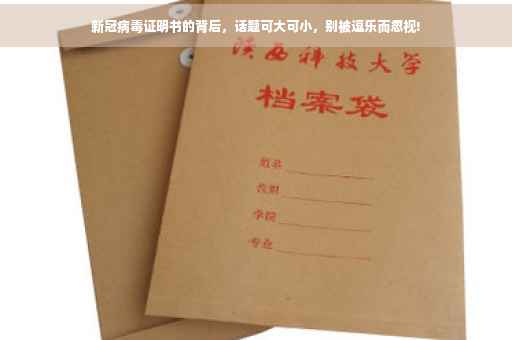 新冠病毒证明书的背后，话题可大可小，别被逗乐而忽视!
陕西科技大学
档案袋
姓名
班级
学院
专业